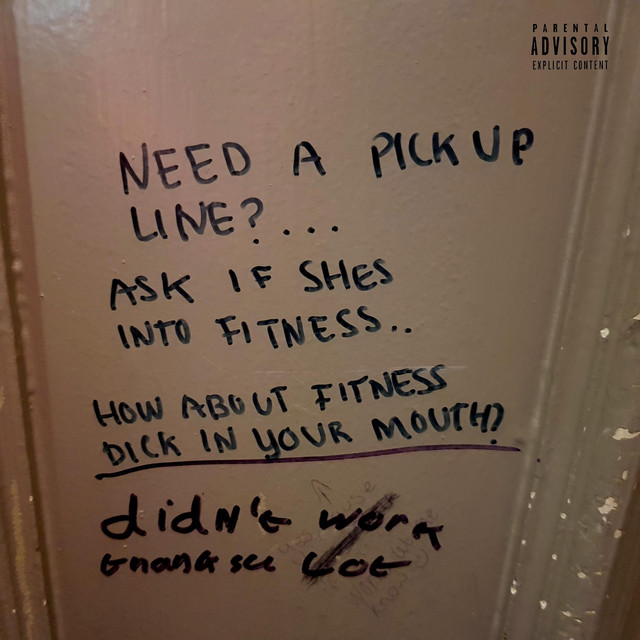 PARENTAL
ADVISORY
EXPLICIT CONTENT
NEED A PICK UP
LINE?....
ASK IF SHES
INTO FITNESS..
HOW ABOUT FITNESS
DICK IN YOUR MOUTH?
didN't work